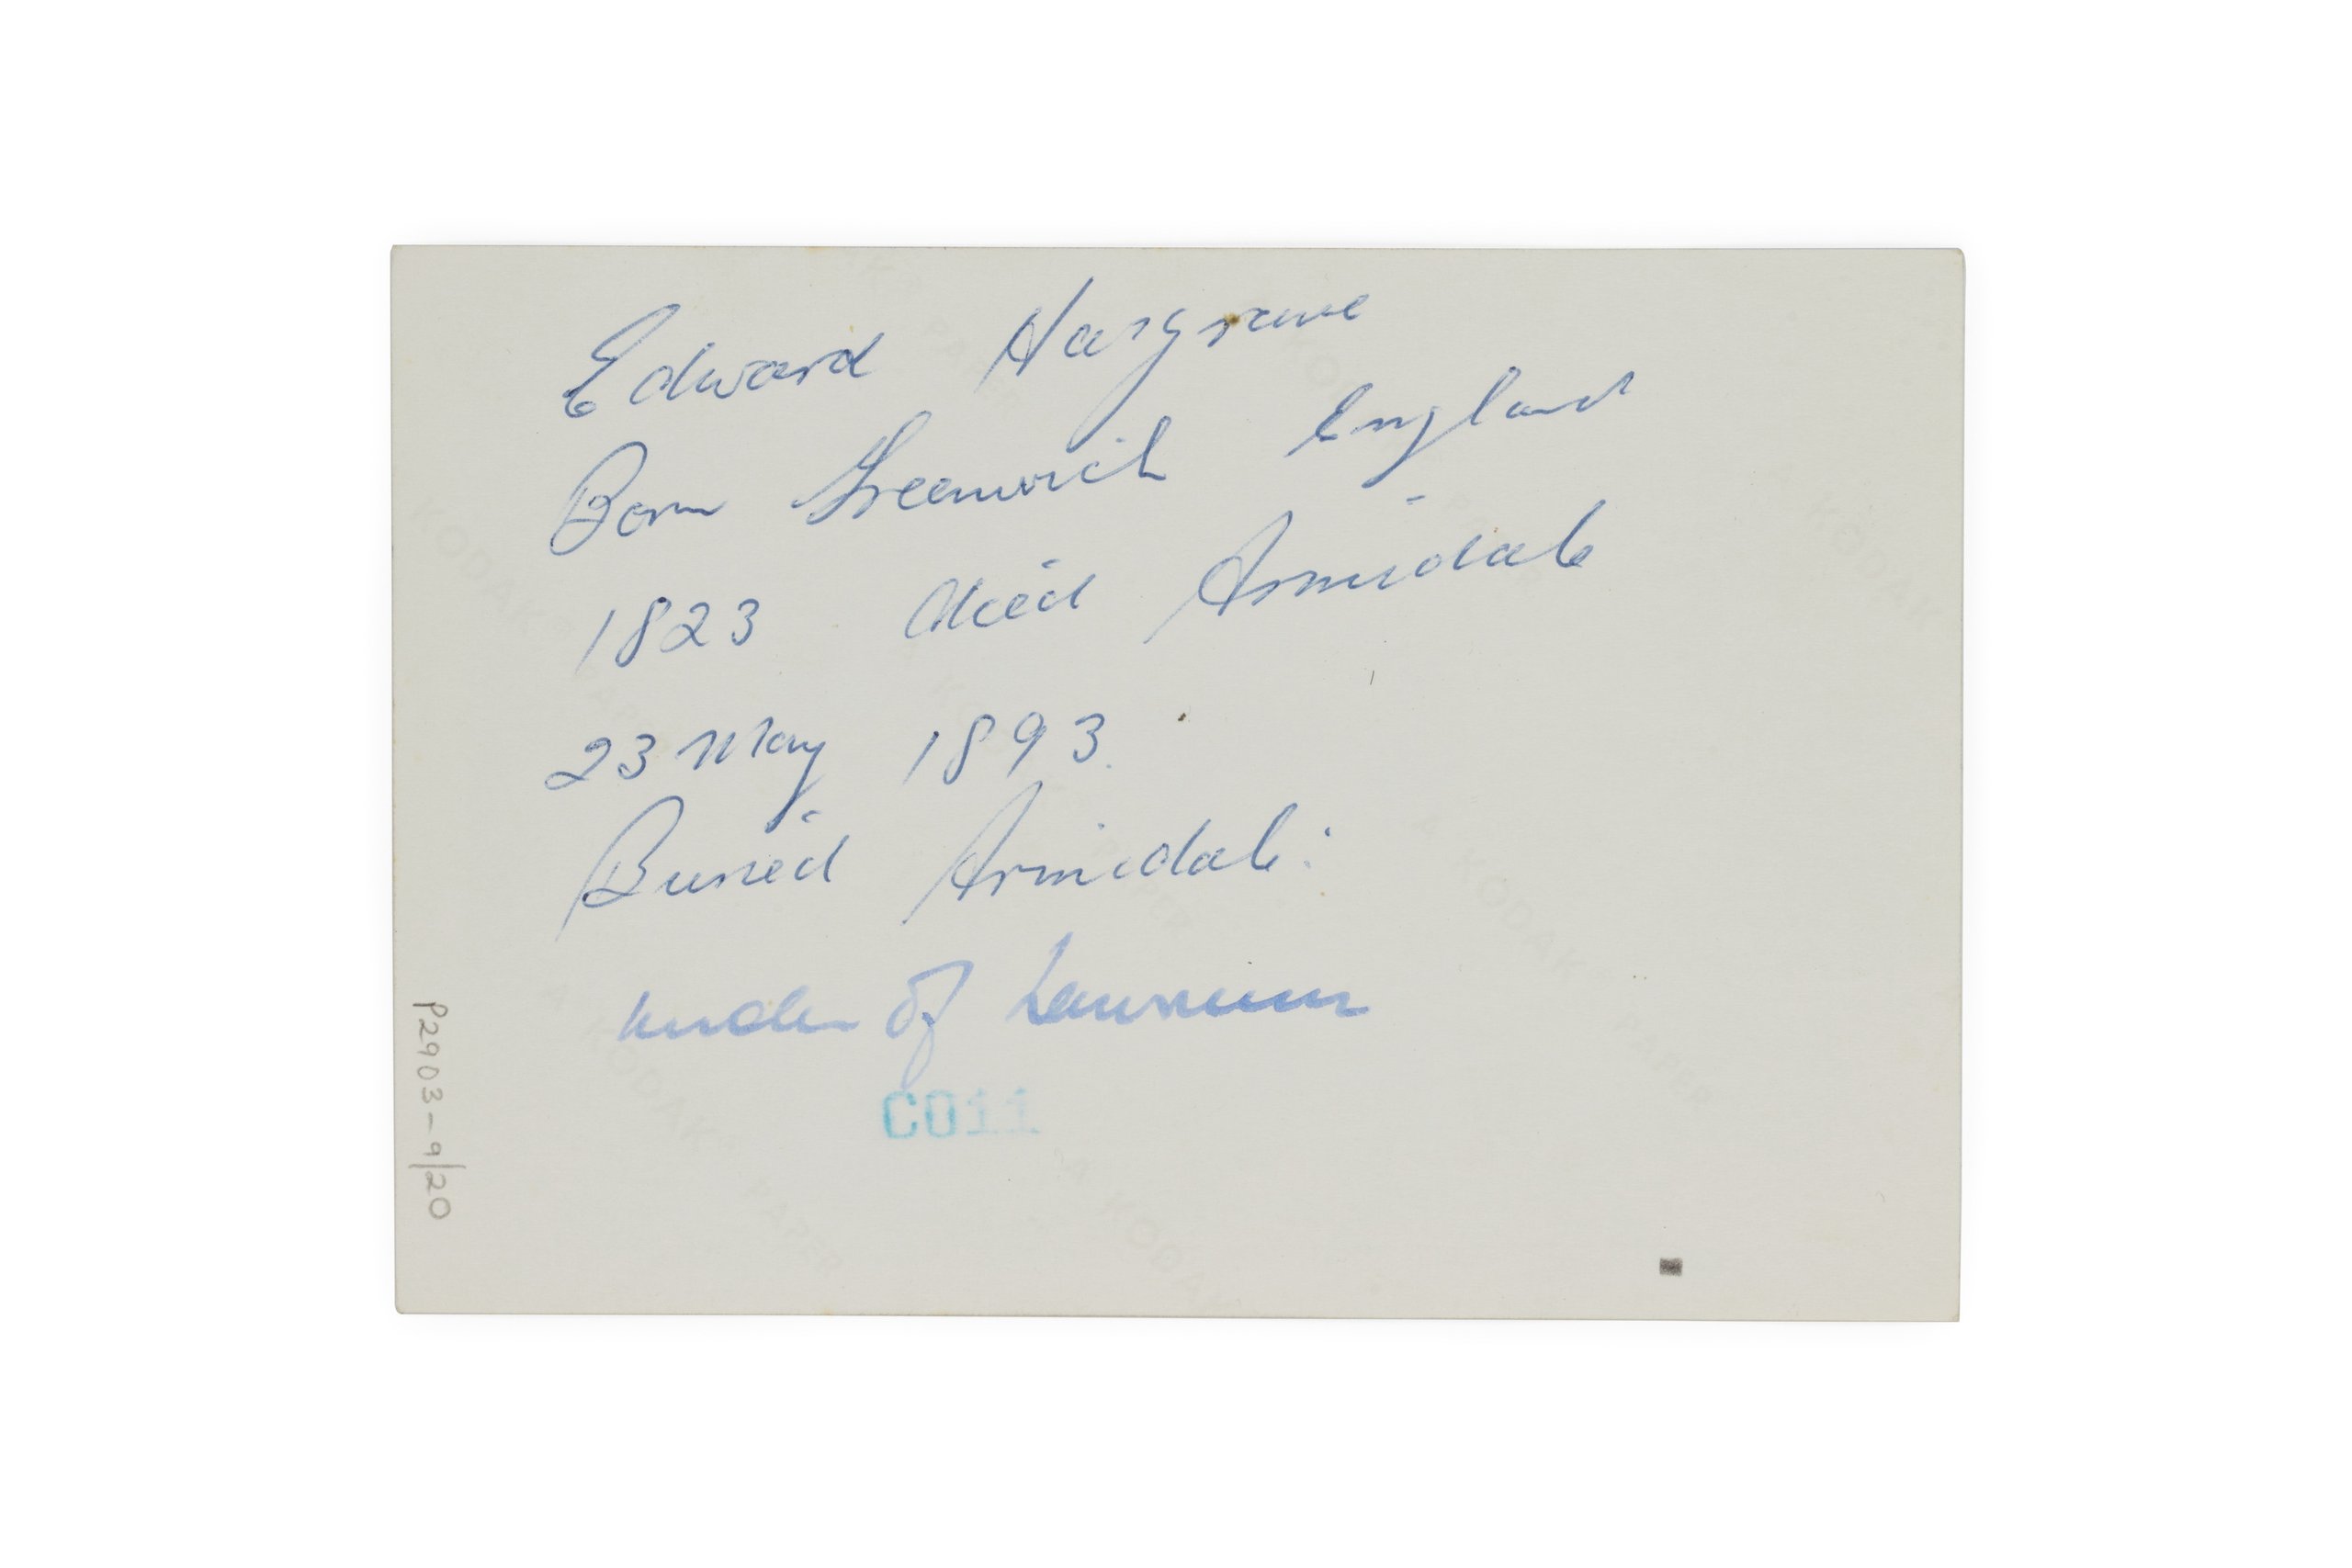 Edward Hargrave
Born Greenwich England
1823 died Armidale
23 May 1893.
Buried Armidale:
uncle of Lawrence
C011
P2903-9/20
A KODAK PAPER